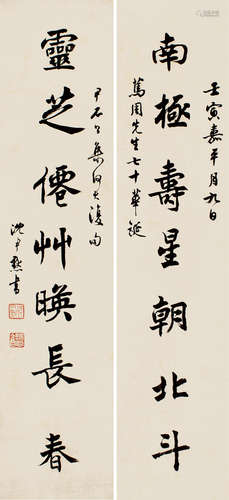 壬寅嘉平月九日
南極壽星朝北斗
篤周先生七十華誕
尹石公集何大復句
靈芝僊艸暎長春
沈尹默書